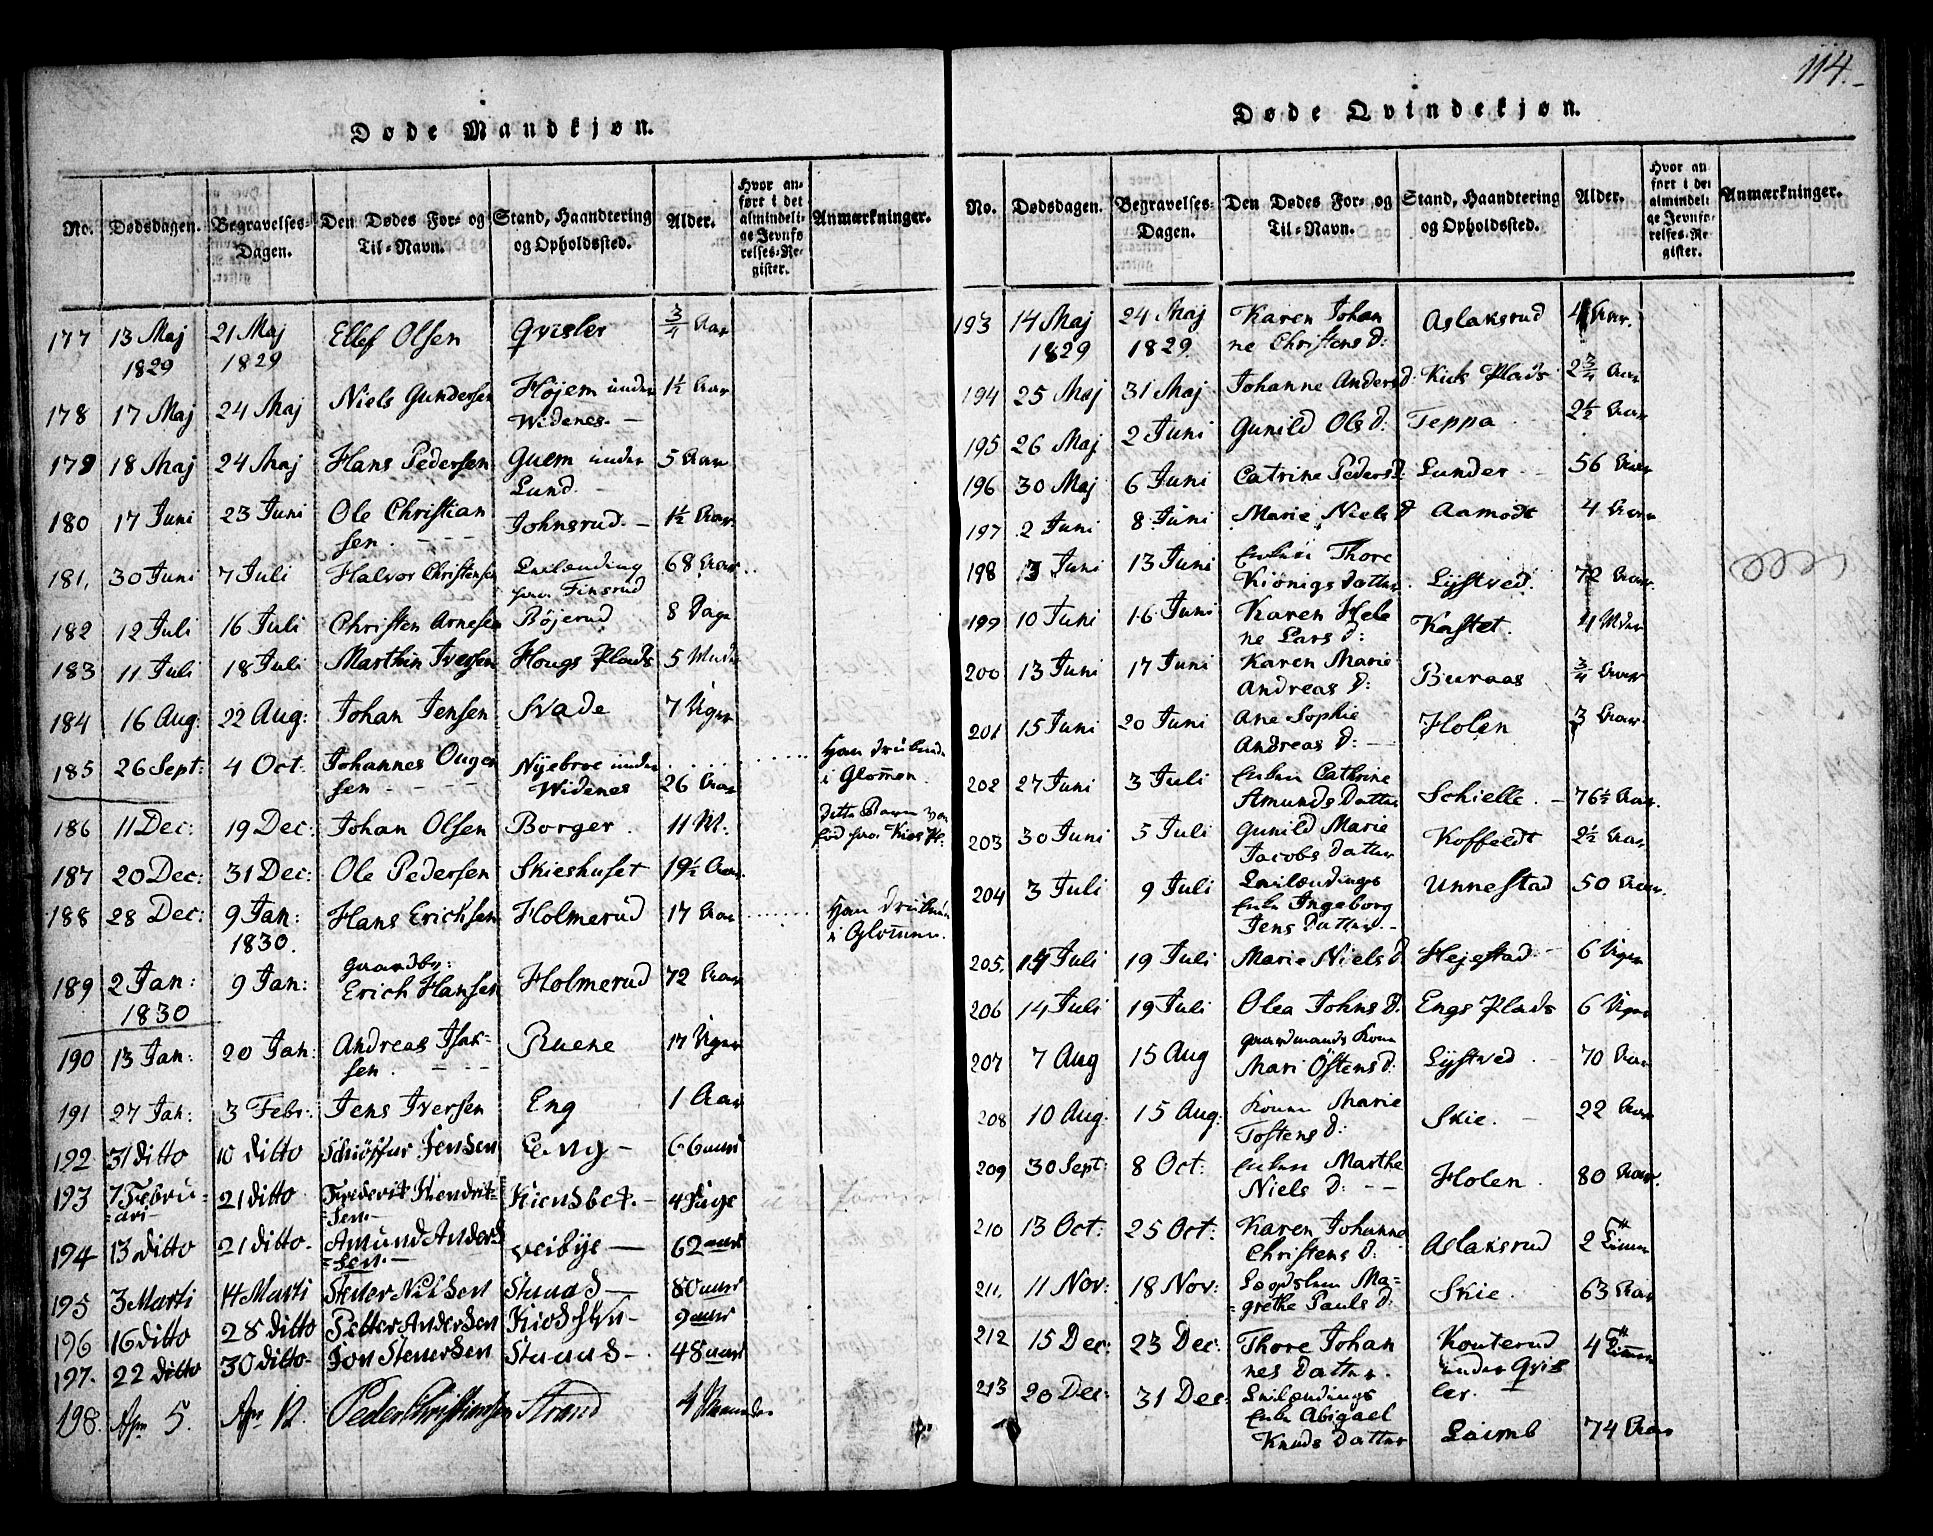 114.
Døde Mandkjøn.
No. Dødsdagen. Begravelses-Dagen. Den Dødes For- og Til-Navn. Stand, Haandtering og Opholdssted. Alder. Hvor anført i det almindelige Jevnførelses-Register. Anmærkninger.
177 13 Maj 1829 21 Maj 1829 Ellef Olsen Qvisler 3/4 Aar
178 17 Maj 24 Maj Niels Gundersen Höjem under Widenes. 1½ Aar
179 18 Maj 24 Maj Hans Pedersen Guem under Lund. 5 Aar
180 17 Juni 23 Juni Ole Christiansen. Johnsrud. 1½ Aar
181. 30 Juni 7 Juli Halvor Christensen Finsrud 68 Aar
182 12 Juli 16 Juli Christen Arnesen Böjerud 8 Dage
183 11 Juli 18 Juli Marthin Iversen Hougs Plads 5
184 16 Aug: 22 Aug: Johan Jensen Svade 7 Uger
185 26 Sept: 4 Oct: Johannes sen Nyebroe under Widenes 26 Aar i Glommen.
186 11 Dec: 19 Dec: Johan Olsen Borger. 11 M:
187 20 Dec: 31 Dec: Ole Pedersen Skieshuset 19½ Aar
188 28 Dec: 9 Jan: 1830. Hans Ericksen Holmerud 17 Aar i Glommen.
189 2 Jan: 1830 9 Jan: Gaardbr: Erich Hansen Holmerud 72 Aar
190 13 Jan: 20 Jan: Andreas Isaksen. Ruene 17 Uger
191 27 Jan: 3 Febr: Jens Iversen Eng 1 Aar
192 31 ditto 10 ditto Jensen Eeng 66 aar
193 7 Februari 21 ditto Frederik Hendriksen Kiensbet 4 Dage
194 13 ditto 21 ditto Amund Andersen veibye 62 aar
195 3 Marti 14 Marti Stener Nilsen 80 aar
196 16 ditto 28 ditto Petter Andersen 9 aar
197. 22 ditto 30 ditto Jon Stenersen 48 aar
198. Apr 5. Apr 12. Peder Christiansen Strand 4 Maaneder
Døde Qvindekjøn.
No. Dødsdagen. Begravelses-Dagen. Den Dødes For- og Til-Navn. Stand, Haandtering og Opholdssted. Alder. Hvor anført i det almindelige Jevnførelses-Register. Anmærkninger.
193 14 Maj 1829 24 Maj 1829 Karen Johanne Christens d: Aslaksrud Aar.
194 25 Maj 31 Maj Johanne Anders d: Plads 2 3/4 Aar
195 26 Maj 2 Juni Gunild Ols d: Teppa 2½ Aar
196 30 Maj 6 Juni Catrine Peders d: Lunder 56 Aar
197 2 Juni 8 Juni Marie Niels d Aamodt 4 Aar
198 3 Juni 13 Juni Enken Thore Kiönigs Datter. Lystved. 72 Aar
199 10 Juni 16 Juni Karen Helene Lars d: Kastet. 4 Mdr
200 13 Juni 17 Juni Karen Marie Andreas d: Buraas 3/4 Aar
201 15 Juni 20 Juni Ane Sophie Andreas d: Holen 3 Aar
202 27 Juni 3 Juli Enken Cathrine Amunds Datter Schielle. 76½ Aar.
203 30 Juni 5 Juli Gunild Marie Jacobs Datter Koffeldt 2½ Aar
204 3 Juli 9 Juli Enke Ingeborg Jens Datter. Unnestad 50 Aar.
205. 14 Juli 19 Juli Marie Niels d Hejestad 6 Uger
206 14 Juli 19 Juli Olea Johns d. Engs Plads 6 Uger
207 7 Aug 15 Aug Gaardmands Kone Mari Östens d: Lystved 70 Aar
208 10 Aug: 15 Aug: Konen Marie Tostens d: Skie. 22 Aar
209 30 Sept: 8 Oct: Enken Marthe Niels d: Holen. 80 Aar.
210 13 Oct: 25 Oct: Karen Johanne Christens d: Aslaksrud 2 Timer
211. 11 Nov: 18 Nov: Magrethe Pauls d: Skie. 63 Aar
212 15 Dec: 23 Dec: Thore Johannes Datter. Konterud under Qvisler. 4 Timer
213 20 Dec: 31 Dec: Enke Abigael Knuds Datter 74 Aar